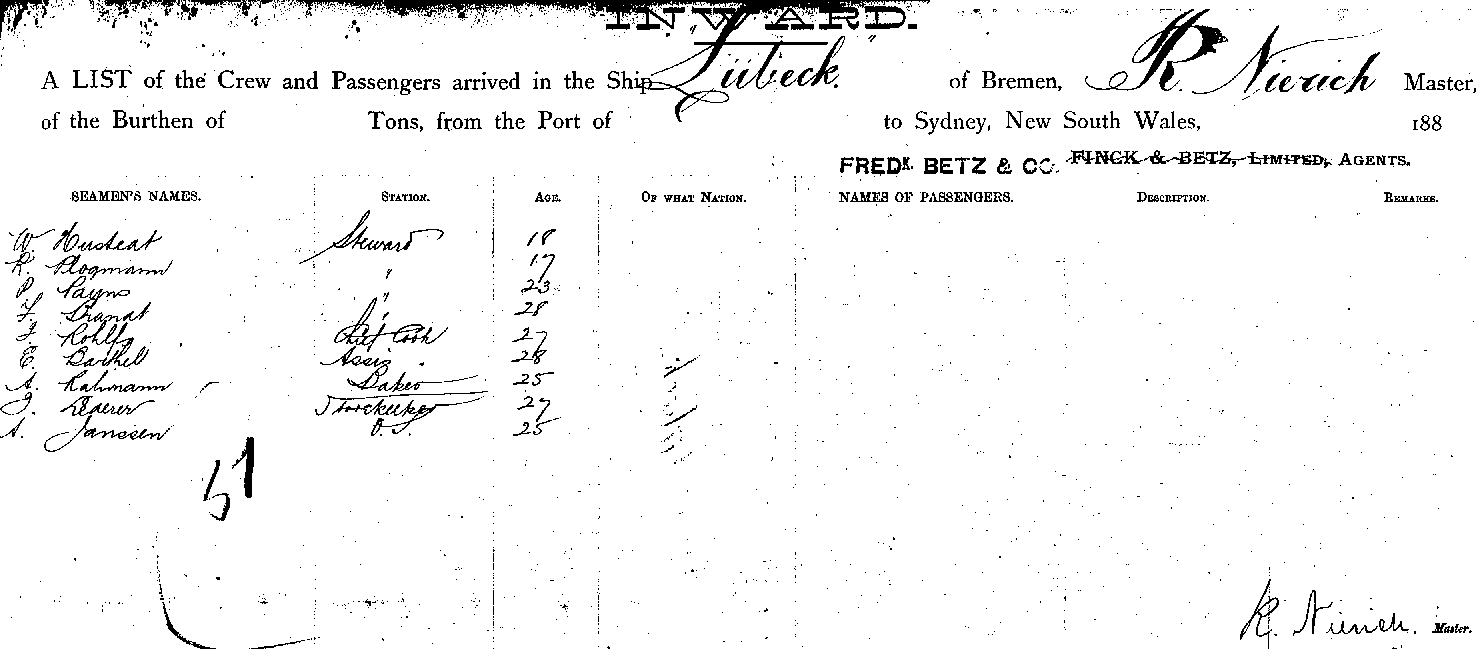 INWARD.
A LIST of the Crew and Passengers arrived in the Ship "Lübeck." of Bremen, R. Nierich Master,
of the Burthen of Tons, from the Port of to Sydney, New South Wales, 188
FREDK. BETZ & CO. FINCK & BETZ, LIMITED, AGENTS.
SEAMEN'S NAMES. STATION. AGE. OF WHAT NATION. NAMES OF PASSENGERS. DESCRIPTION. REMARKS.
W. Husteat Steward 18
R. Plogmann " 17
P. Payns " 23
F. Brandt " 28
J. Rohlfs Chief Cook 27
E. Barthel Assis . 28
A. Rahmann Baker 25
J. Lederer Storekeeper 27
A. Janssen O.S. 25
51
R. Nierich. Master.